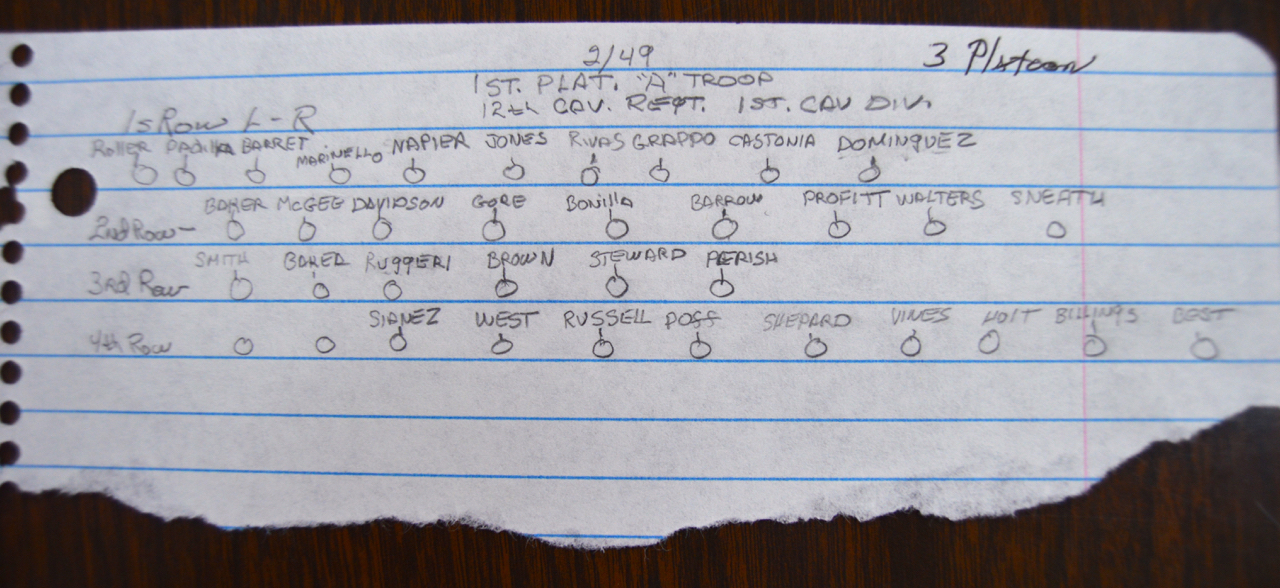 2/49
3 Platoon
1ST. PLAT. "A" TROOP
12th CAV. REGT. 1ST. CAV DIV.
1s Row L-R
ROLLER PADILLA BARRET MARINELLO NAPIER JONES RIVAS GRAPPO CASTONIA DOMINQUEZ
BAKER McGEE DAVIDSON GORE BONILLA BARROW PROFITT WALTERS SNEATH
2nd Row-
SMITH RUGGERI BROWN STEWARD PERISH
3rd Row
SIANEZ WEST RUSSELL POSS SHEPARD VINES HOLT BILLINGS BEST
4th Row